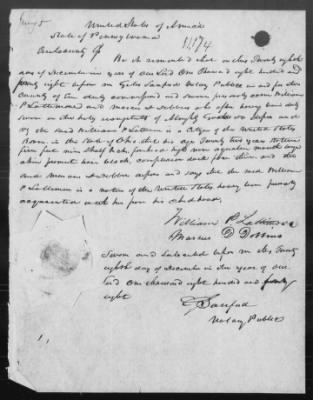 United States of America
State of Pennsylvania
11174
Be it remembered that on this Twenty eighth
day of December in year of our Lord One Thousand eight hundred and
forty eight before me Giles Sanford Notary Public in and for the
County of Erie duly commissioned and sworn personally came William
P Lattimore and Marcus D Dobbins who after having been duly
sworn on the holy evangelists of Almighty God
say the said William P Lattimore is a Citizen of the United States
Born in the State of Ohio that his age Twenty two years
five feet nine & half inch, forehead high nose aquiline mouth
chin prominent hair black, complexion dark face thin and the
said Marcus D Dobbins deposes and says that the said William
P Lattimore is a native of the United States having been personally
acquainted with him from his Childhood.
William P Lattimore
Marcus D Dobbins
Sworn and Subscribed before me this Twenty
eighth day of December in the year of our
Lord One thousand eight hundred and forty
eight
G Sanford
Notary Public